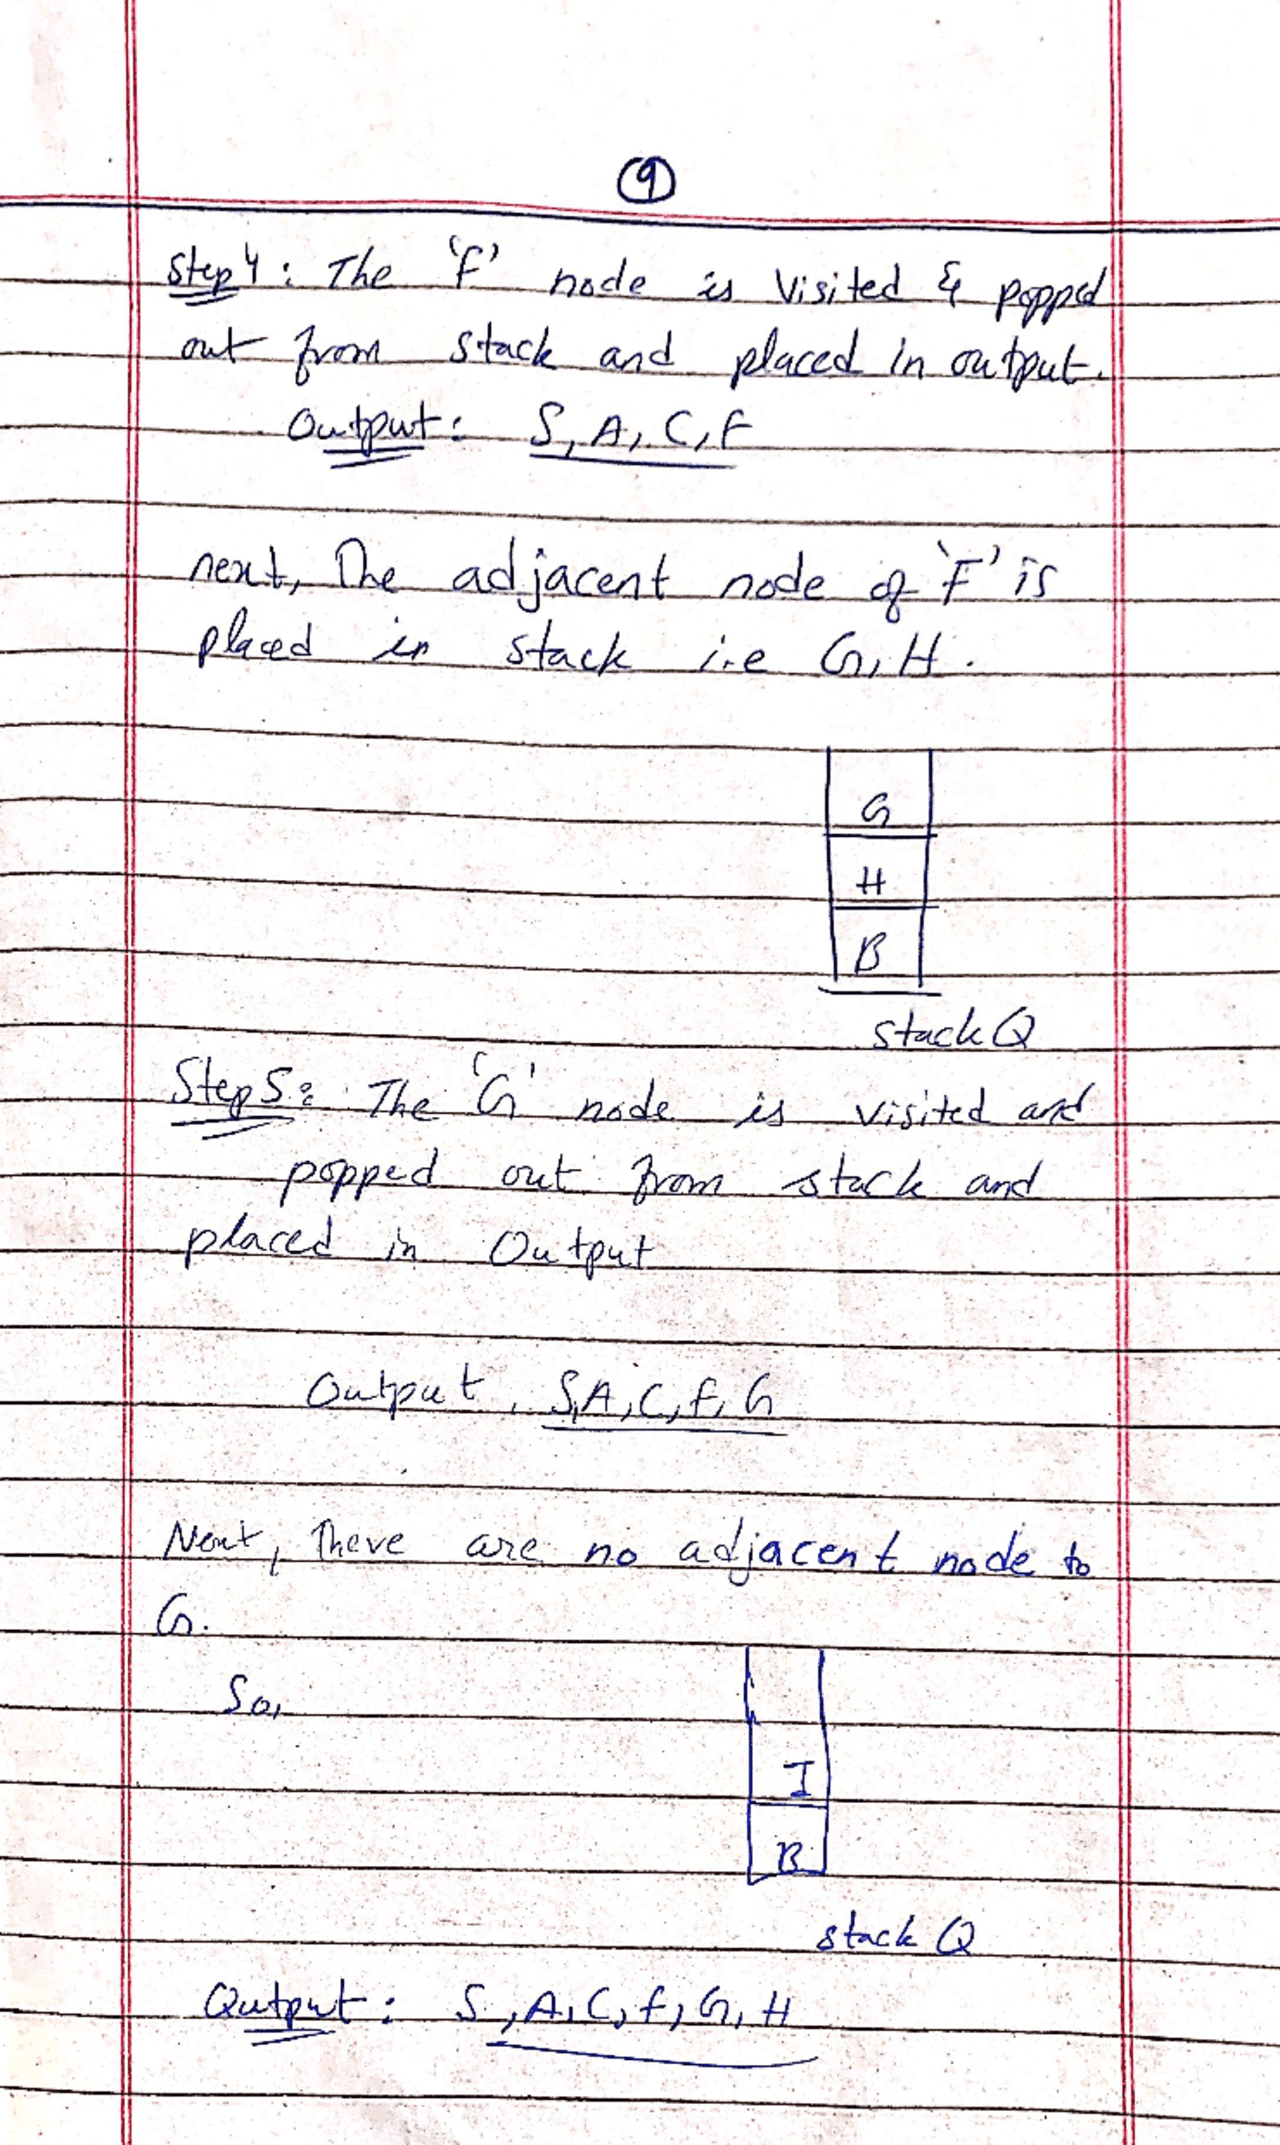 9
Step 4: The 'F' node is Visited & popped
out from stack and placed in output.
Output: S, A, C, F
next, The adjacent node of 'F' is
placed in stack i.e G, H.
G
H
B
stack Q
Step 5: The 'G' node is visited and
popped out from stack and
placed in Output
Output, S, A, C, F, G
Next, There are no adjacent node to
G.
So,
I
B
stack Q
Output: S, A, C, F, G, H